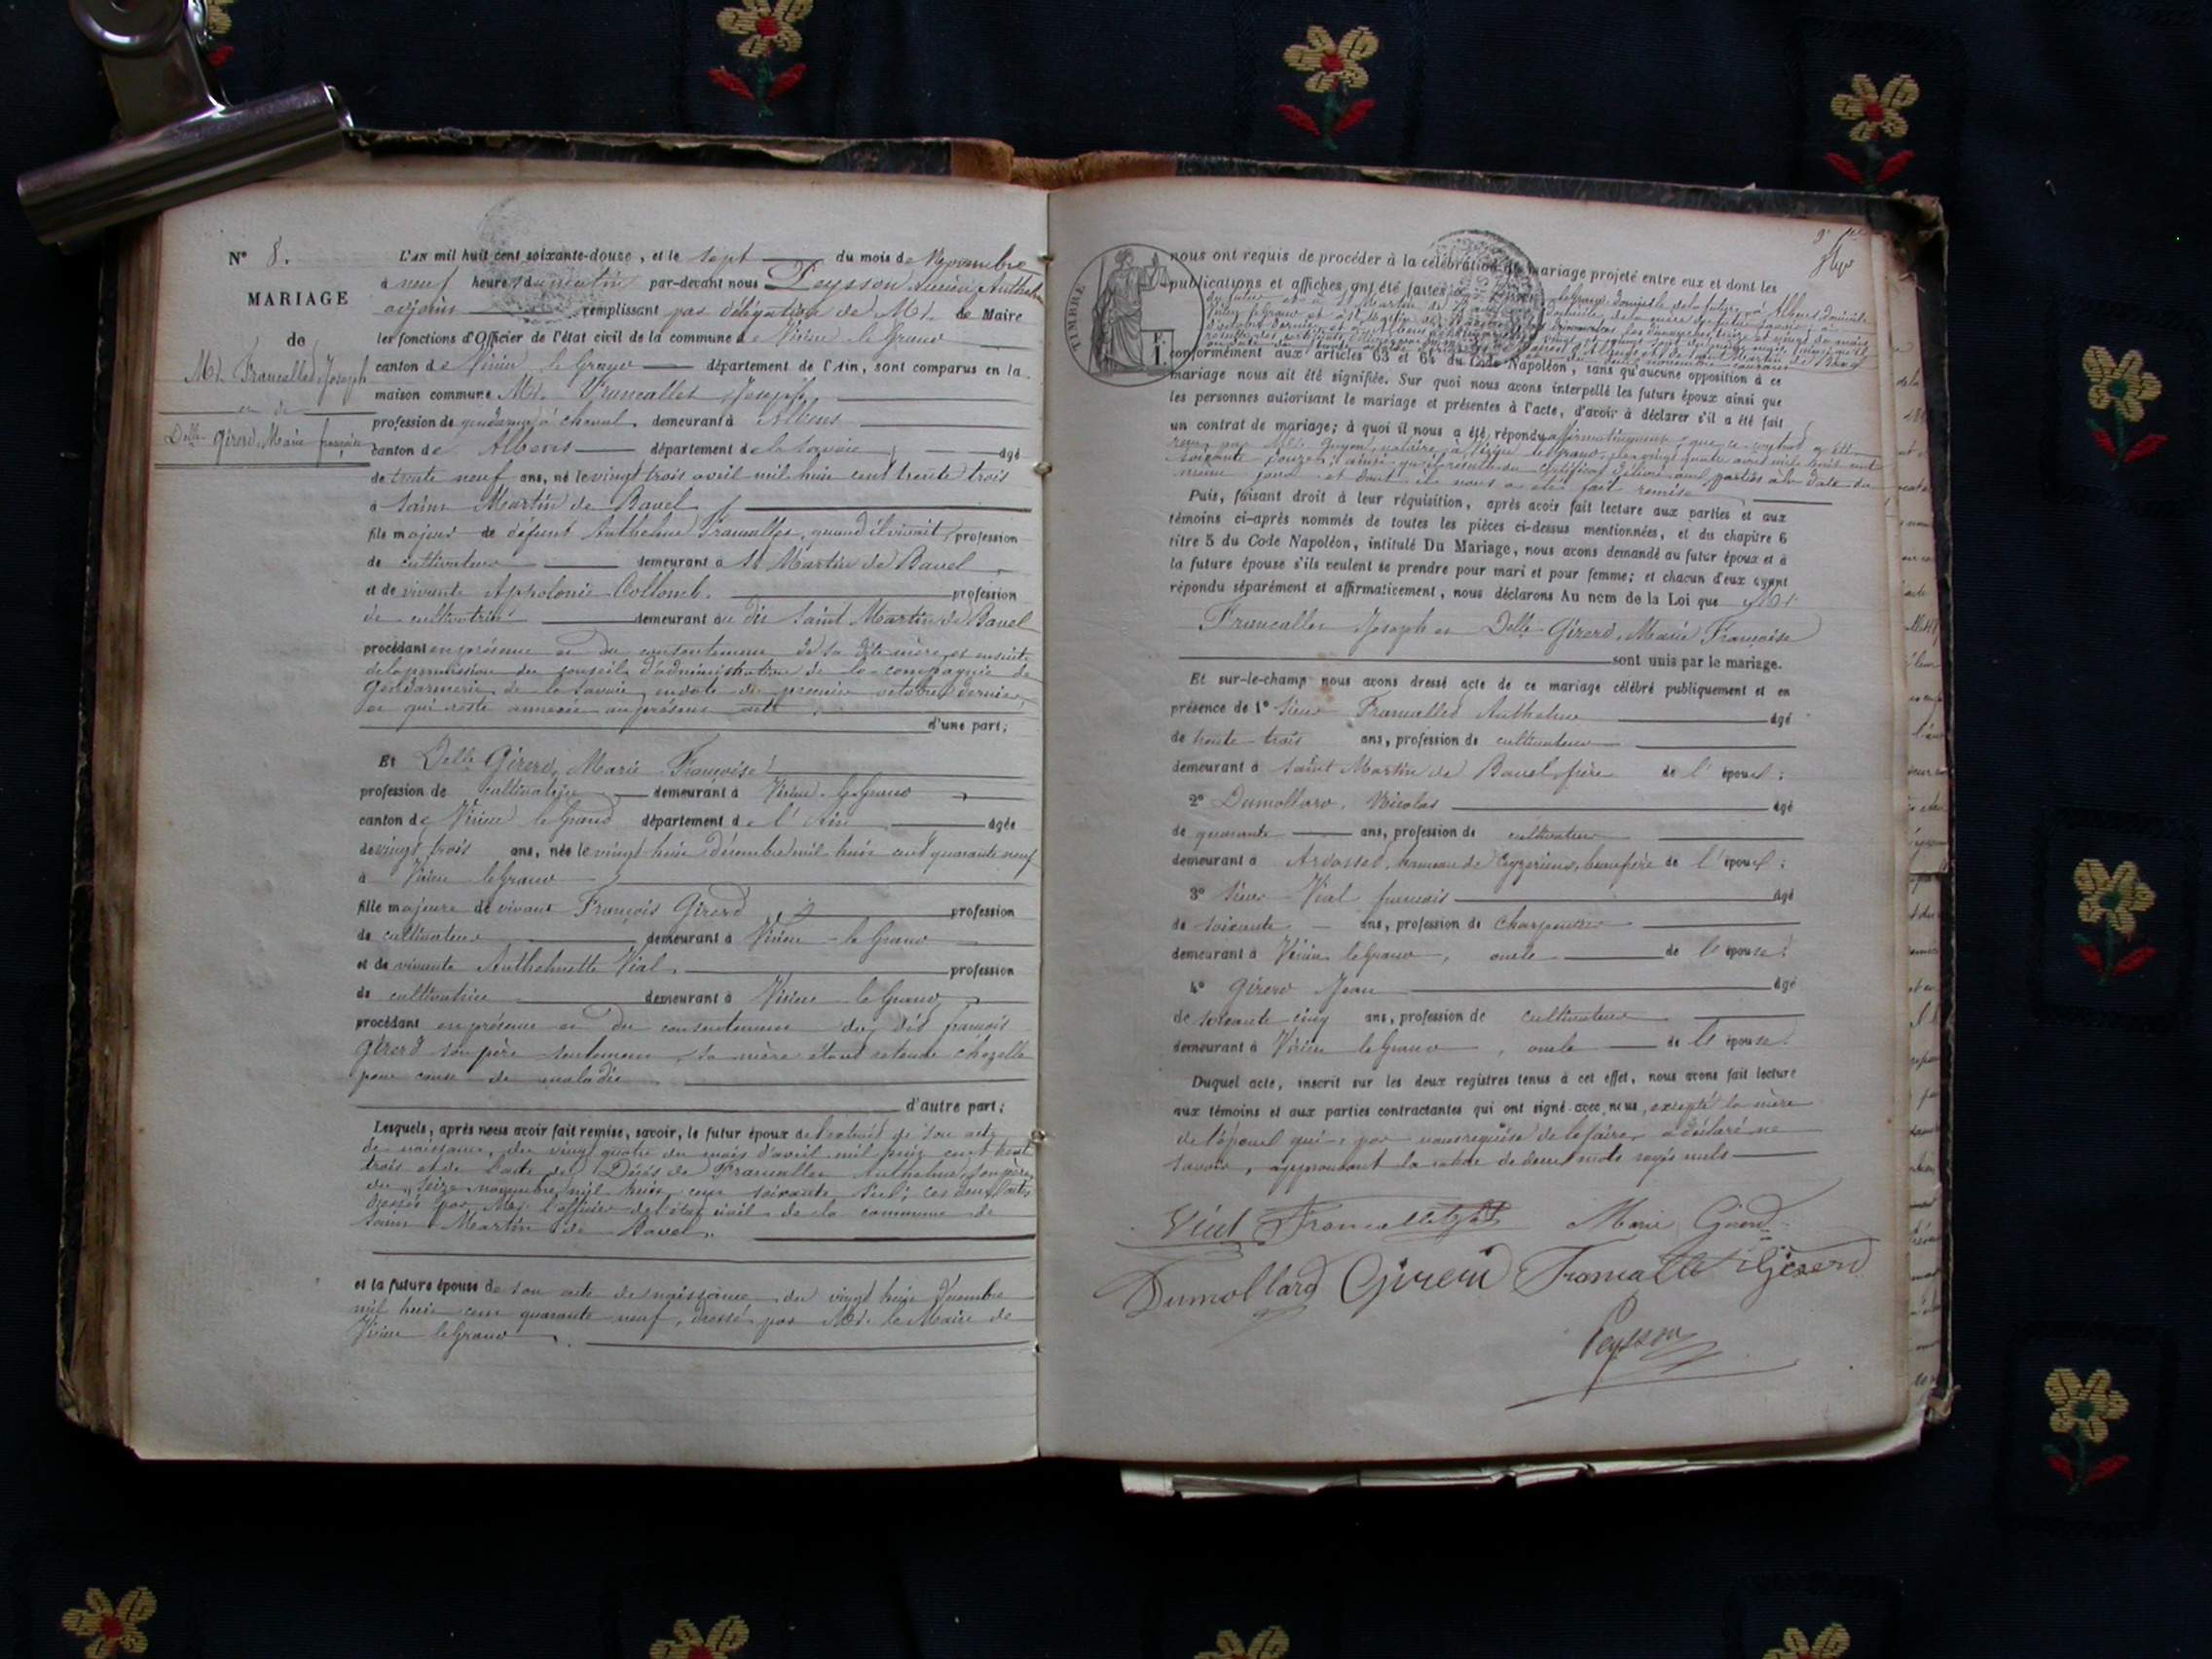 N° 8.
MARIAGE
de
Mr. Francallet Joseph
et de
Delle Girerd, Marie françoise
L'AN mil huit cent soixante-douze, et le sept du mois de Novembre
à neuf heures du matin par-devant nous Peysson Lucien Anthelme
adjoint remplissant par délégation de Mr. le Maire
les fonctions d'Officier de l'état civil de la commune de Virieu le Grand
canton de Virieu le Grand département de l'Ain, sont comparus en la
maison commune Mr. Francallet Joseph,
profession de gendarme à cheval demeurant à Albens
canton de Albens département de la Savoie, âgé
de trente neuf ans, né le vingt trois avril mil huit cent trente trois
à Saint Martin de Bavel
fils majeur de défunt Anthelme Francallet, quand il vivait, profession
de cultivateur demeurant à St Martin de Bavel
et de vivante Appolonie Collomb. profession
de cultivatrice demeurant au dit Saint Martin de Bavel
procédant en présence et du consentement de sa dite mère, et ensuite
de la permission du conseil d'administration de la compagnie de
Gendarmerie de la Savoie, en date du premier octobre dernier,
ce qui reste annexée au présent acte.
d'une part;
Et Delle Girerd, Marie Françoise
profession de cultivatrice demeurant à Virieu le Grand
canton de Virieu le Grand département de l'Ain âgée
de vingt trois ans, née le vingt huit décembre mil huit cent quarante neuf
à Virieu le Grand
fille majeure de vivant François Girerd profession
de cultivateur demeurant à Virieu le Grand
et de vivante Anthelmette Vial. profession
de cultivatrice demeurant à Virieu le Grand
procédant en présence et du consentement du dit françois
Girerd son père seulement, sa mère étant retenue chez elle
pour cause de maladie
d'autre part;
Lesquels, après nous avoir fait remise, savoir, le futur époux de l'extrait de son acte
de naissance, du vingt quatre du mois d'avril mil huit cent trente
trois et de l'acte de Décès de Francallet Anthelme, son père,
du seize novembre mil huit cent soixante ces deux actes
dressés par Mr. l'officier de l'état civil de la commune de
Saint Martin de Bavel.
et la future épouse de son acte de naissance du vingt huit Décembre
mil huit cent quarante neuf, dressé par Mr. le Maire de
Virieu le Grand.
TIMBRE
F.
1.
nous ont requis de procéder à la célébration du mariage projeté entre eux et dont les
publications et affiches ont été faites
conformément aux articles 63 et 64 du Code Napoléon, sans qu'aucune opposition à ce
mariage nous ait été signifiée. Sur quoi nous avons interpellé les futurs époux ainsi que
les personnes autorisant le mariage et présentes à l'acte, d'avoir à déclarer s'il a été fait
un contrat de mariage; à quoi il nous a été répondu affirmativement que ce contrat a été
reçu par Me. Guyon, notaire à Virieu le Grand, le vingt quatre août mil huit cent
soixante douze, ainsi qu'il résulte du certificat délivré aux parties à la date du
même jour et dont il nous a été fait remise
Puis, faisant droit à leur réquisition, après avoir fait lecture aux parties et aux
témoins ci-après nommés de toutes les pièces ci-dessus mentionnées, et du chapitre 6
titre 5 du Code Napoléon, intitulé Du Mariage, nous avons demandé au futur époux et à
la future épouse s'ils veulent se prendre pour mari et pour femme; et chacun d'eux ayant
répondu séparément et affirmativement, nous déclarons Au nom de la Loi que Mr.
Francallet Joseph et Delle Girerd, Marie Françoise
sont unis par le mariage.
Et sur-le-champ nous avons dressé acte de ce mariage célébré publiquement et en
présence de 1° Sieur Francallet Anthelme âgé
de trente trois ans, profession de cultivateur
demeurant à Saint Martin de Bavel, frère de l'époux;
2° Dumollard, Nicolas âgé
de quarante ans, profession de cultivateur
demeurant à Ardosset, hameau de Ceyzerieu, beaufrère de l'époux;
3° Sieur Vial françois âgé
de soixante ans, profession de charpentier
demeurant à Virieu le Grand, oncle de l'épouse;
4° Girerd Jean âgé
de soixante cinq ans, profession de cultivateur
demeurant à Virieu le Grand, oncle de l'épouse.
Duquel acte, inscrit sur les deux registres tenus à cet effet, nous avons fait lecture
aux témoins et aux parties contractantes qui ont signé avec nous, excepté la mère
de l'époux qui par nous requise de le faire, a déclaré ne
savoir, approuvant la rature de deux mots rayés nuls
Vial Francallet Marie Girerd
Dumollard Girerd Francallet Girerd
Peysson